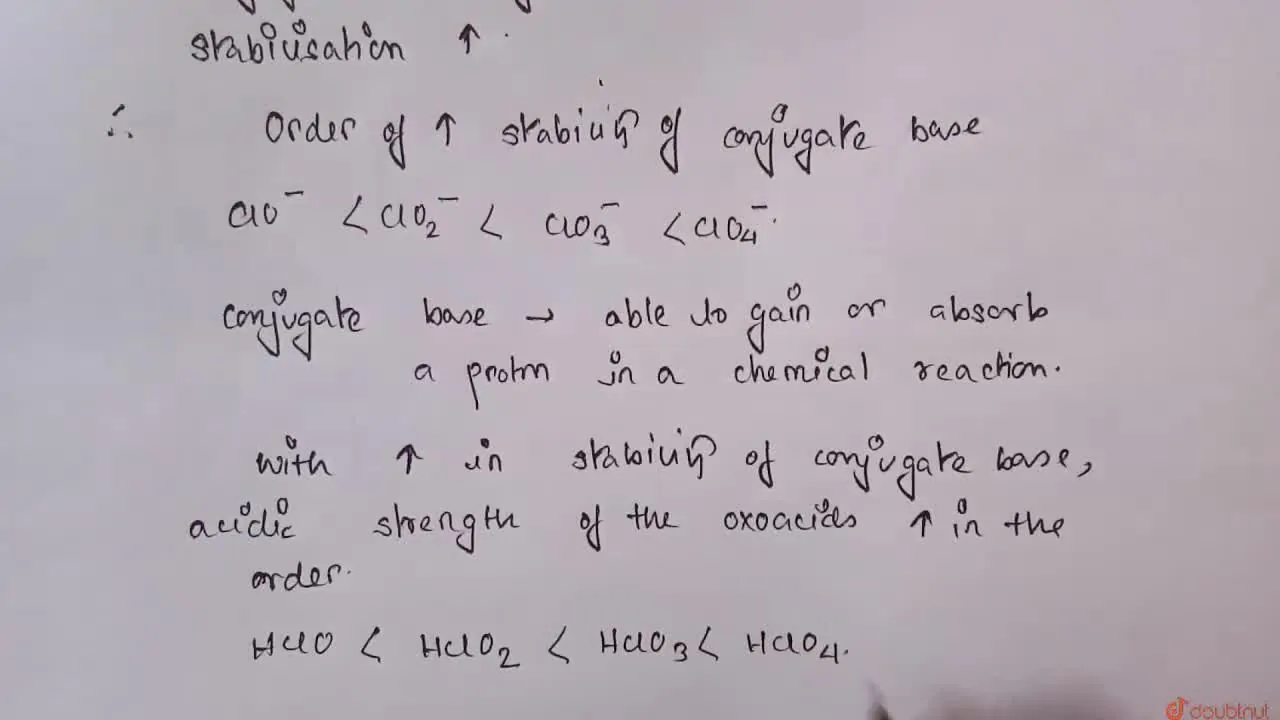 stabilisation ↑.
∴ Order of ↑ stability of conjugate base
ClO⁻ < ClO₂⁻ < ClO₃⁻ < ClO₄⁻.
conjugate base → able to gain or absorb
a proton in a chemical reaction.
with ↑ in stability of conjugate base,
acidic strength of the oxoacids ↑ in the
order.
HClO < HClO₂ < HClO₃ < HClO₄.
doubtnut